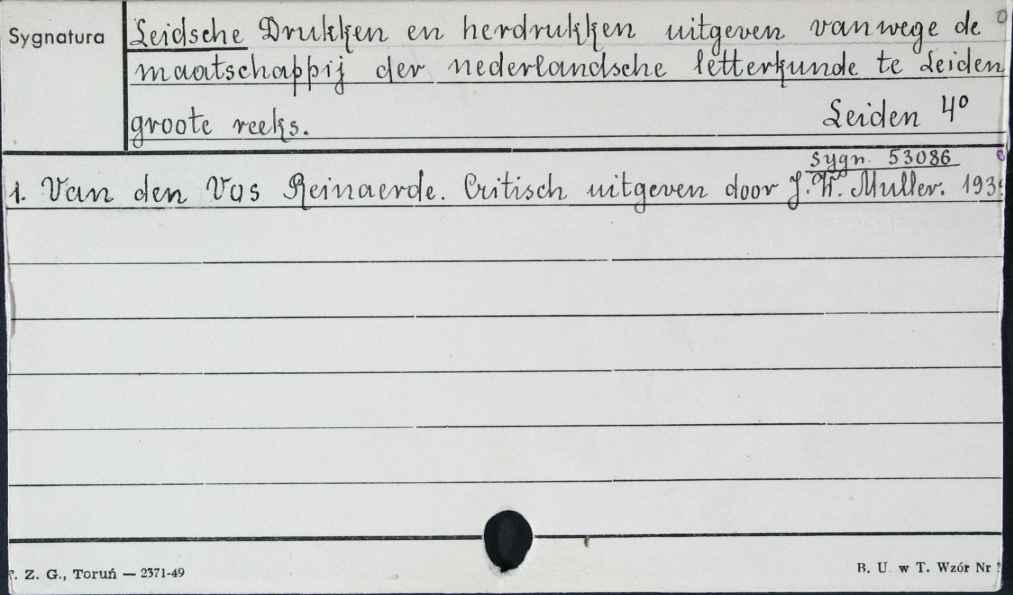 Sygnatura
Leidsche Drukken en herdrukken uitgeven vanwege de
maatschappij der nederlandsche letterkunde te Leiden
groote reeks. Leiden 4º
Sygn. 53086
1. Van den Vos Reinaerde. Critisch uitgeven door J. W. Muller. 193
Z. G., Toruń — 2371-49
B. U. w T. Wzór Nr